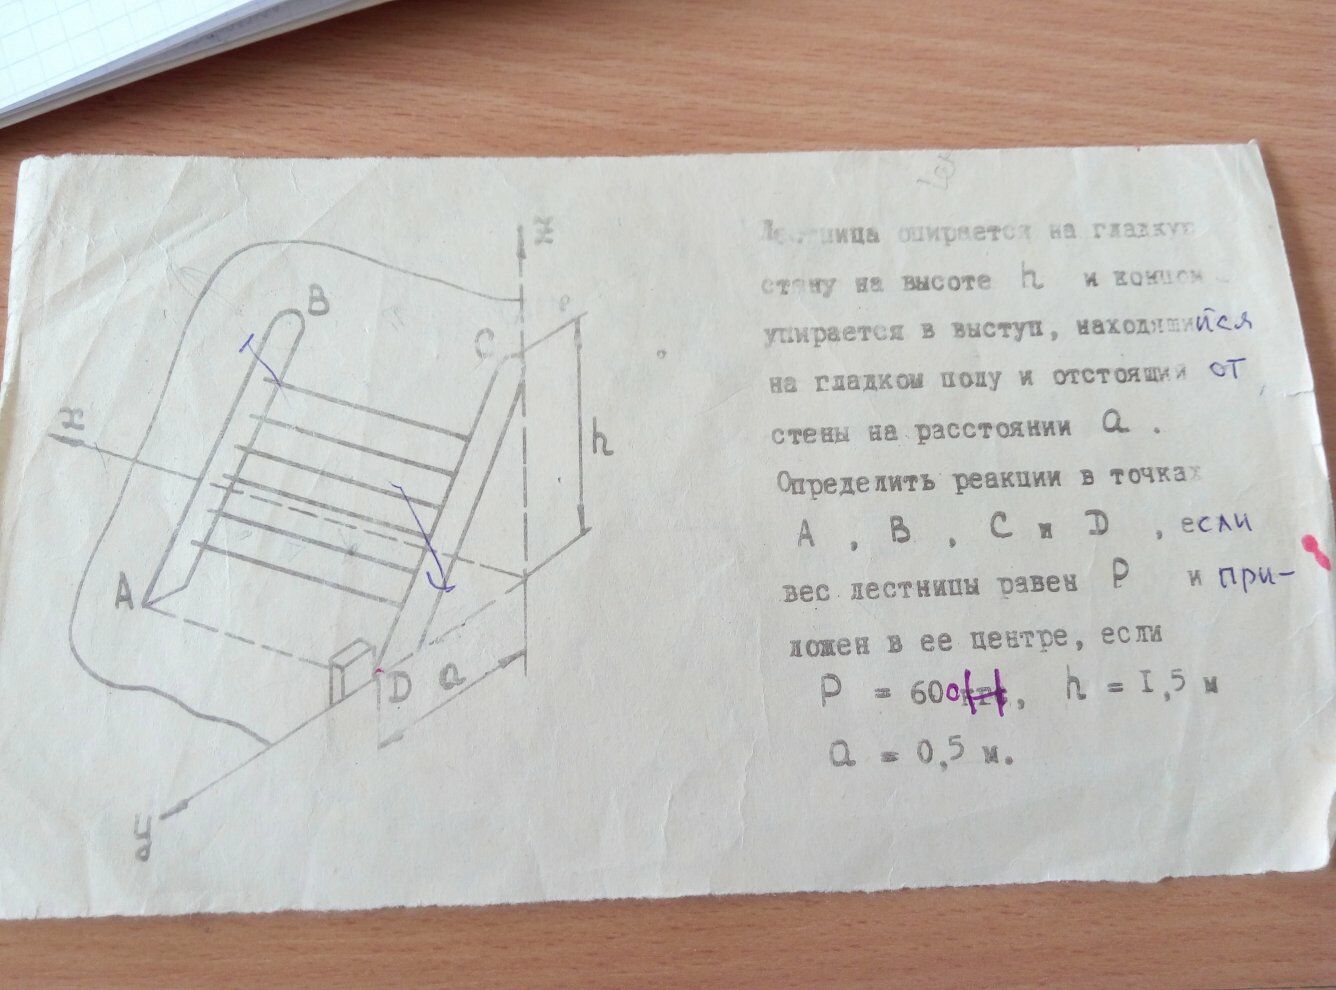 z
B
C
x
h
A
D
a
y
Лестница опирается на гладкую
стену на высоте h и концом
упирается в выступ, находящийся
на гладком полу и отстоящий от
стены на расстоянии a.
Определить реакции в точках
A , B , C и D , если
вес лестницы равен P и при-
ложен в ее центре, если
P = 600 Н, h = I,5 м
a = 0,5 м.